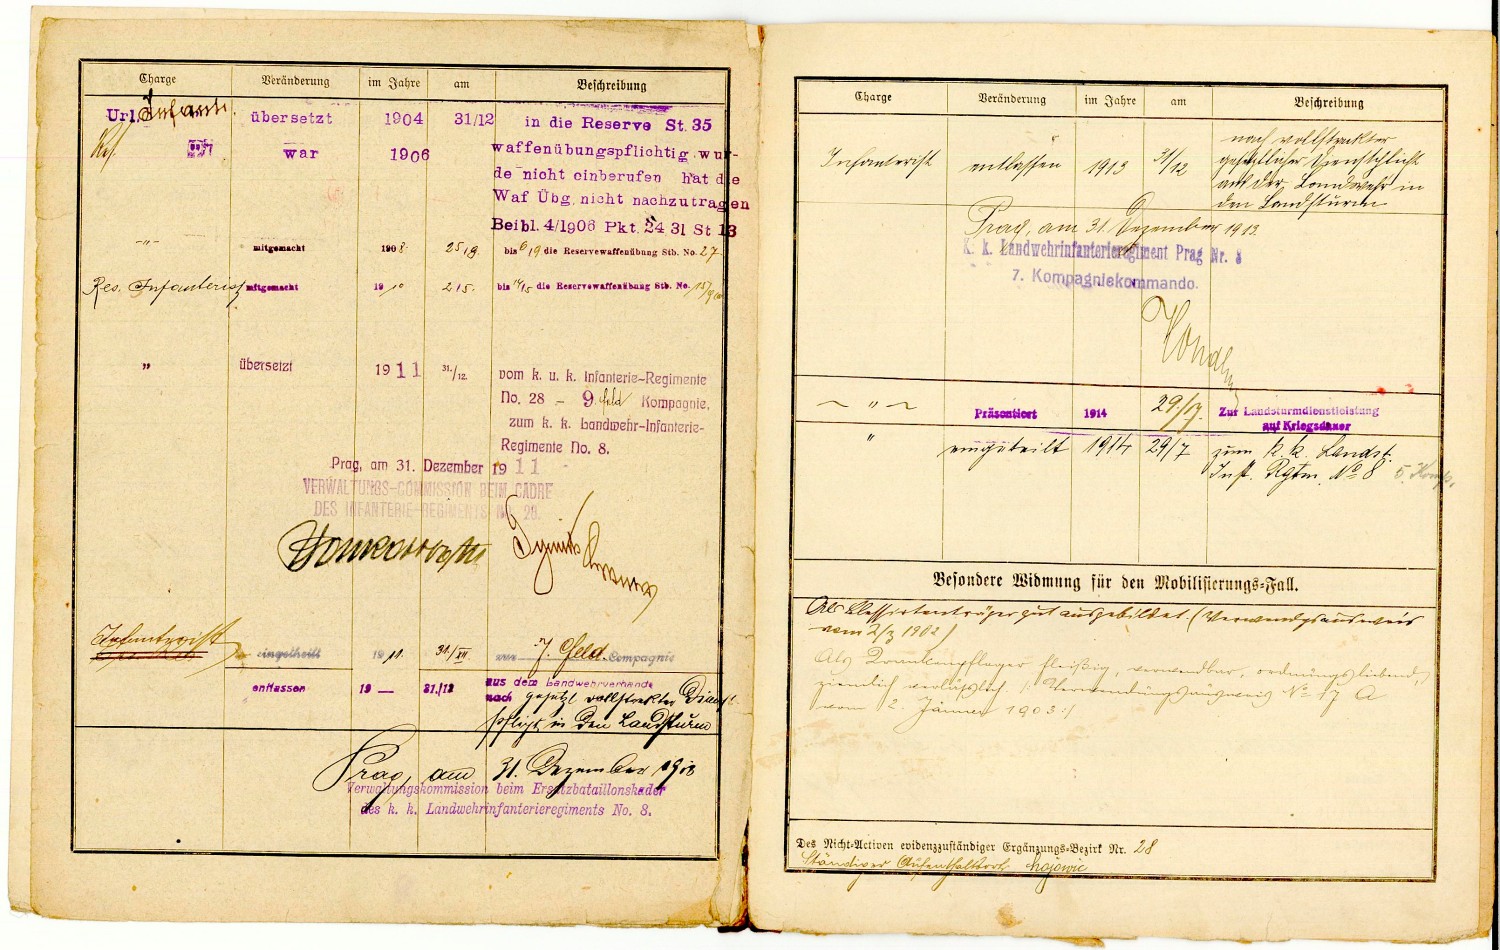 Charge Veränderung im Jahre am Beschreibung
Url. Infant. übersetzt 1904 31/12 in die Reserve St. 35
Res. war 1906 waffenübungspflichtig wur-
de nicht einberufen hat die
Waf Übg. nicht nachzutragen
Beibl. 4/1906 Pkt. 24 31 St 13
-"- mitgemacht 1908. 25/8. bis 6/9 die Reservewaffenübung Stb. No. 27
Res. Infanterist mitgemacht 1910 2/5. bis 14/5 die Reservewaffenübung Stb. No.
" übersetzt 1911 31./12. vom k. u. k. Infanterie-Regimente
No. 28 - 9. Feld Kompagnie,
zum k. k. Landwehr-Infanterie-
Regimente No. 8.
Prag, am 31. Dezember 1911
VERWALTUNGS-COMMISSION BEIM CADRE
DES INFANTERIE-REGIMENTS No. 28.
Infanterist eingetheilt 1911. 31/XII. zur 7. Feld Compagnie
entlassen 19 — 31./12 aus dem Landwehrverbande
nach gesetzl vollstreckter Dienst-
pflicht in den Landsturm
Prag, am 31. Dezember
Verwaltungskommission beim Ersatzbataillonskader
des k. k. Landwehrinfanterieregiments No. 8.
Charge Veränderung im Jahre am Beschreibung
Infanterist entlassen 1913 31/12 nach vollstreckter
gesetzlicher Dienstpflicht
aus der Landwehr in
den Landsturm
Prag, am 31. Dezember 1913
K. k. Landwehrinfanterieregiment Prag Nr. 8
7. Kompagniekommando.
— " — Präsentiert 1914 29./7. Zur Landsturmdienstleistung
auf Kriegsdauer
" eingeteilt 1914 29/7 zum k. k. Landst.
Inft. Rgtm. No 8 5. Komp.
Besondere Widmung für den Mobilisierungs-Fall.
Als Blessirtenträger gut ausgebildet. (Verwendgsausweis
vom 2/3 1902)
Als Krankenpfleger fleißig, verwendbar, ordnungsliebend,
ziemlich verläßlich /: Verwendungsausweis No 17 A
vom 2. Jänner 1903 :/
Des Nicht-Activen evidenzzuständiger Ergänzungs-Bezirk Nr. 28
Ständiger Aufenthaltsort